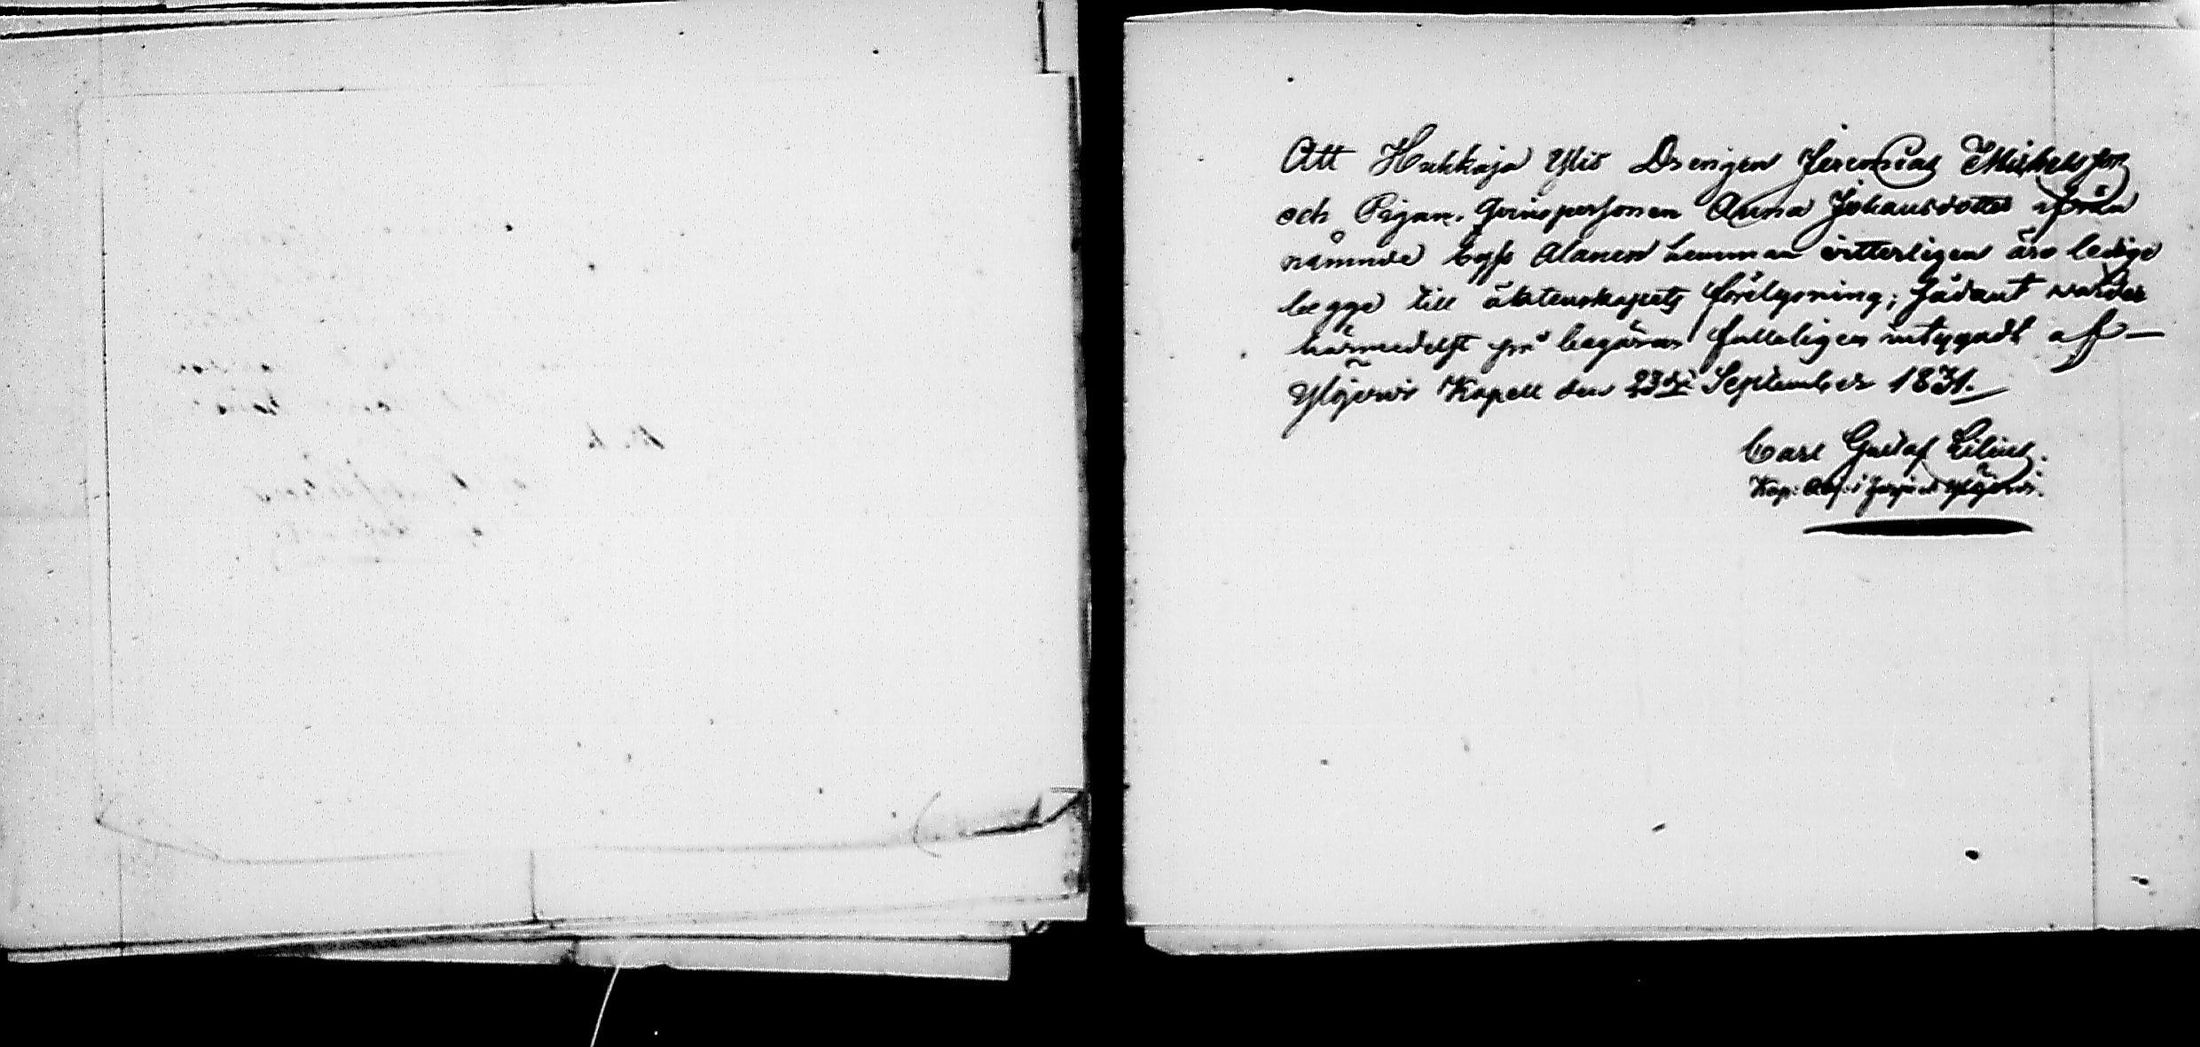 Att Hukkaja Ylis Drengen Jeremias Mickelsson
och Pigan, Qvinspersonen Anna Johansdotter ifrån
nämnde byss Alanen hemman vitterligen äro ledige
begge till äktenskapets förelysning; sådant warder
härmedelst på begäran fulleligen intygadt af—
Ylöjerwi Kapell den 23dje September 1831.
Carl Gustaf Lilius.
Kap: Adj: i Ylöjerwi.